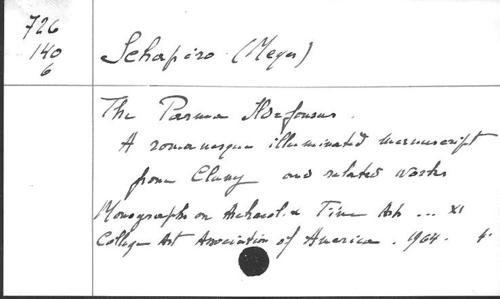 726
140
6
Schapiro (Meyer)
The Parma Ildefonsus.
A romanesque illuminated manuscript
from Cluny and related works
Monographs on Archaeol. & Fine Arts ... XI
College Art Association of America. 1964. 4.